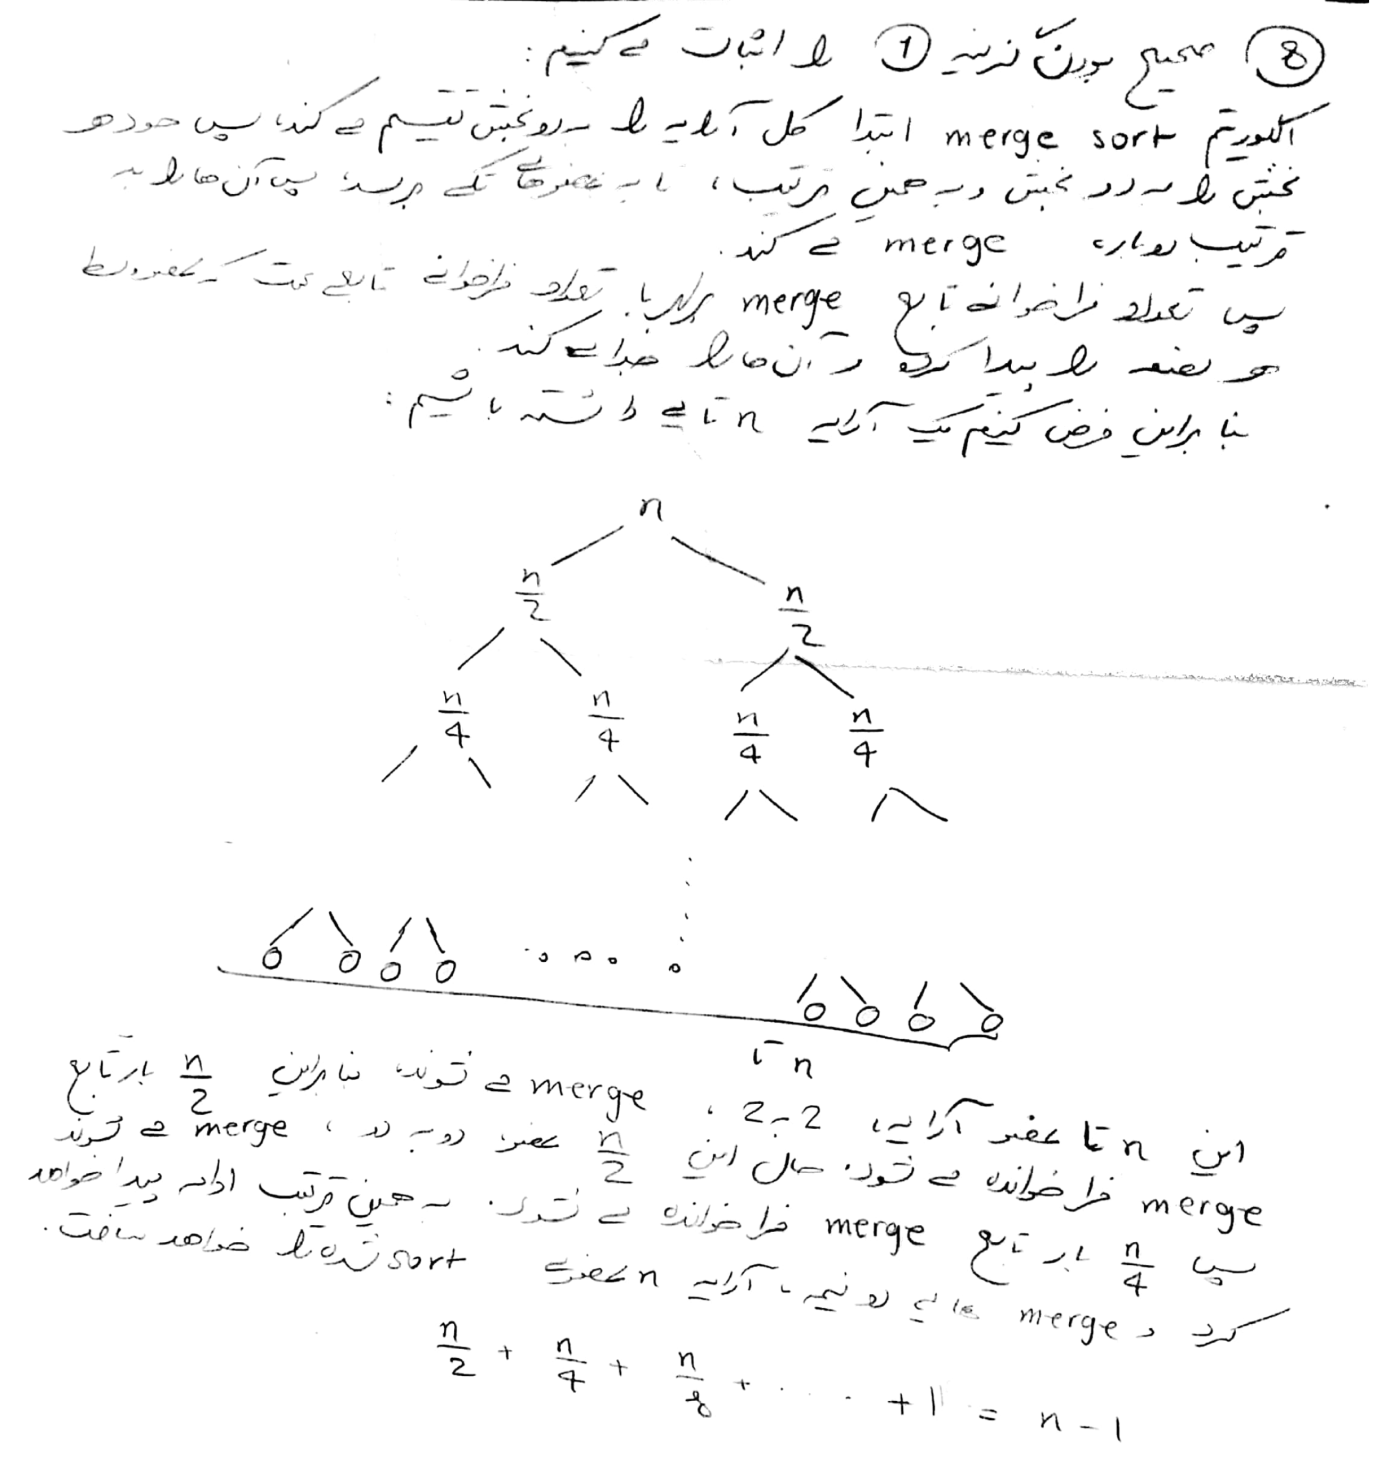 8 صحیح بودن گزینه 1 را اثبات می کنیم :
الگوریتم merge sort ابتدا کل آرایه را به دو بخش تقسیم می کند، سپس خود هر
بخش را به دو بخش و به همین ترتیب، تا به عضوهای تکی برسد، سپس آن ها را به
ترتیب دوباره merge می کند.
پس تعداد فراخوانی تابع merge برابر با تعداد فراخوانی تابعی ست که عضو وسط
هر نصفه را پیدا کرده و آن ها را جدا می کند.
بنابراین فرض کنیم یک آرایه n تایی داشته باشیم :
n
n/2 n/2
n/4 n/4 n/4 n/4
n تا
این n تا عضو آرایه، 2 به 2، merge می شوند، بنابراین n/2 بار تابع
merge فراخوانده می شود. حال این n/2 عضو، دو به دو، merge می شوند
پس n/4 بار تابع merge فراخوانده می شود. به همین ترتیب ادامه پیدا خواهد
کرد و merge های دو نیمه، آرایه n عضوی sort شده را خواهد ساخت.
n/2 + n/4 + n/8 + .... + 1 = n - 1